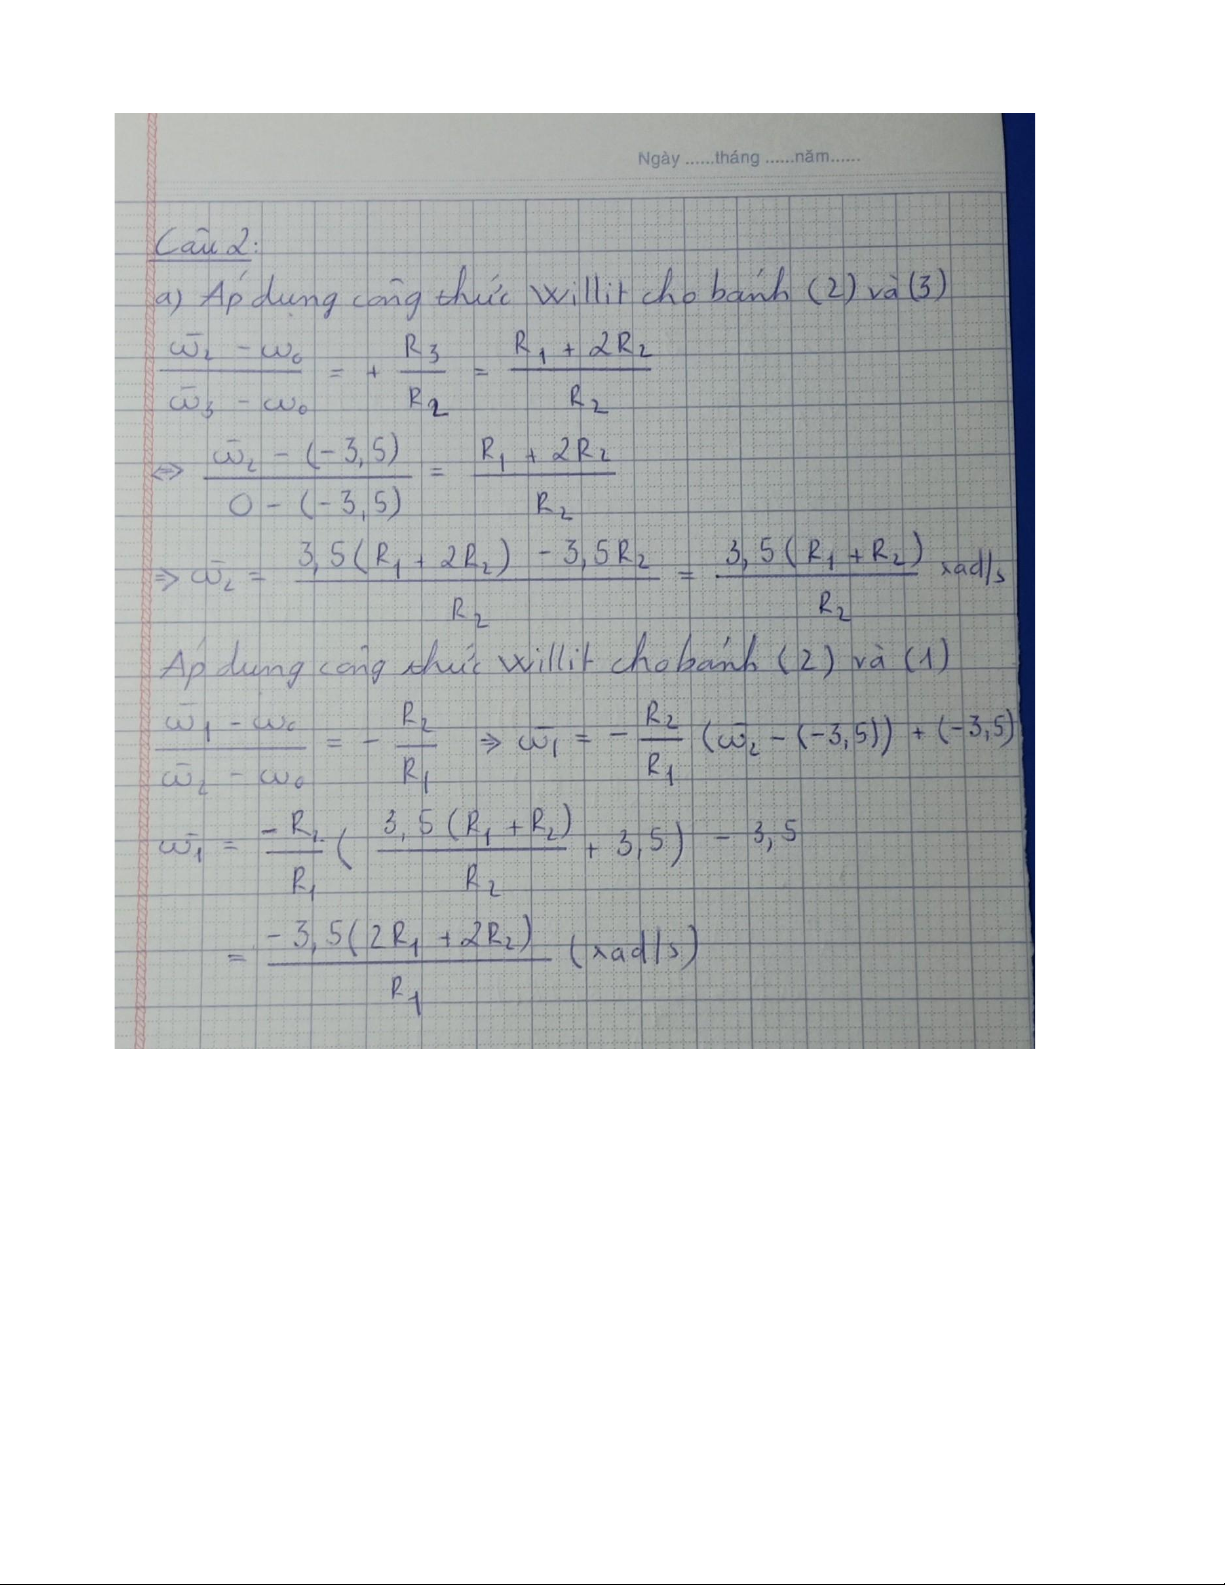 Ngày ......tháng ......năm......
Câu 2:
a) Áp dụng công thức Willit cho bánh (2) và (3)
(ω̄₂ - ω₀)/(ω̄₃ - ω₀) = + R₃/R₂ = (R₁ + 2R₂)/R₂
⇔ (ω̄₂ - (-3,5))/(0 - (-3,5)) = (R₁ + 2R₂)/R₂
⇒ ω̄₂ = (3,5(R₁ + 2R₂) - 3,5R₂)/R₂ = (3,5(R₁ + R₂))/R₂ rad/s
Áp dụng công thức Willit cho bánh (2) và (1)
(ω̄₁ - ω₀)/(ω̄₂ - ω₀) = - R₂/R₁ ⇒ ω̄₁ = - R₂/R₁ (ω̄₂ - (-3,5)) + (-3,5)
ω̄₁ = -R₂/R₁ ( (3,5(R₁ + R₂))/R₂ + 3,5) - 3,5
= (-3,5(2R₁ + 2R₂))/R₁ (rad/s)